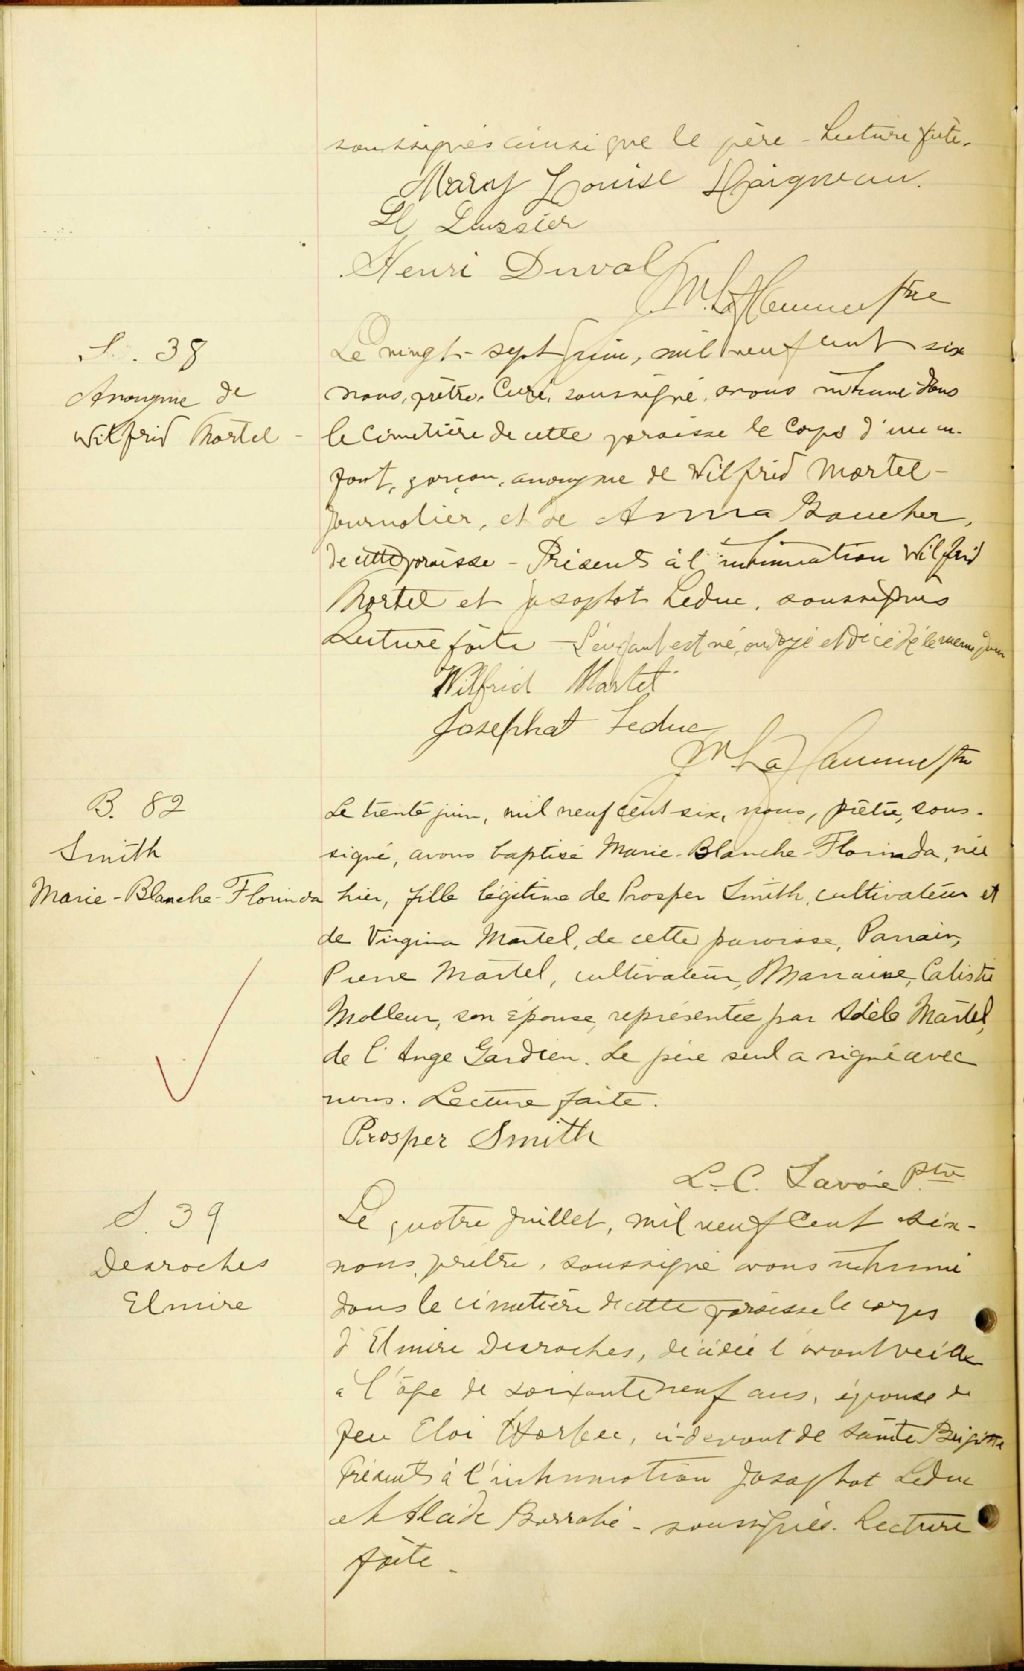 soussignés ainsi que le père - Lecture faite.
Mary Louise Daigneau.
Henri Duval
S. 38
Anonyme de
Wilfrid Martel -
Le vingt-sept juin, mil neuf cent six
nous, prêtre, Curé, soussigné, avons inhumé dans
le Cimetière de cette paroisse le Corps d'un en-
fant, garçon, anonyme de Wilfrid Martel -
journalier, et de Anna Boucher,
de cette paroisse - Présents à l'inhumation Wilfrid
Martel et Josaphat Leduc, soussignés
Lecture faite - L'enfant est né, ondoyé et décédé le même jour
Wilfrid Martel
Josephat Leduc
B. 82
Smith
Marie-Blanche-Florinda
Le trente juin, mil neuf cent six, nous, prêtre, sous-
signé, avons baptisé Marie-Blanche-Florinda, née
hier, fille légitime de Prosper Smith, cultivateur et
de Virgina Martel, de cette paroisse, Parrain,
Pierre Martel, cultivateur, Marraine, Caliste
Molleur, son épouse, représentée par Adèle Martel,
de l'Ange Gardien. Le père seul a signé avec
nous. Lecture faite.
Prosper Smith
L. C. Savoie Ptre
S. 39
Desroches
Elmire
Le quatre juillet, mil neuf cent six -
nous, prêtre, soussigné avons inhumé
dans le cimetière de cette paroisse le corps
d'Elmire Desroches, décédée l'avant veille
à l'âge de soixante neuf ans, épouse de
feu Eloi, ci-devant de Sainte Brigitte
Présents à l'inhumation Josaphat Leduc
et - soussignés. Lecture
faite -